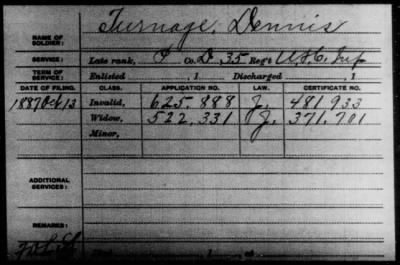 NAME OF SOLDIER: Turnage, Dennis
SERVICE: Late rank, P Co. D, 35 Reg't U.S.C. Inf
TERM OF SERVICE: Enlisted , 1 Discharged , 1
DATE OF FILING. CLASS. APPLICATION NO. LAW. CERTIFICATE NO.
1887 Oct 13 Invalid, 625.888 J, 481.933
Widow, 522,331 J, 371,701
Minor,
ADDITIONAL SERVICES:
REMARKS:
, 1 , at